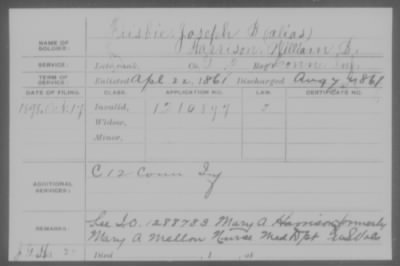 NAME OF SOLDIER:
Frisbie, Joseph B (alias)
Harrison, William D.
SERVICE:
Late rank, Co. Reg't Conn. Inf.
TERM OF SERVICE:
Enlisted Apl 22, 1861 Discharged Aug 7, 1861
DATE OF FILING. CLASS. APPLICATION NO. LAW. CERTIFICATE NO.
Invalid, 1210897
Widow,
Minor,
ADDITIONAL SERVICES:
C 12 Conn Inf
REMARKS:
See I.O. 1288783 Mary A. Harrison formerly
Mary A Mellon Nurse Med Dept U S Vols
Died , 1 , at